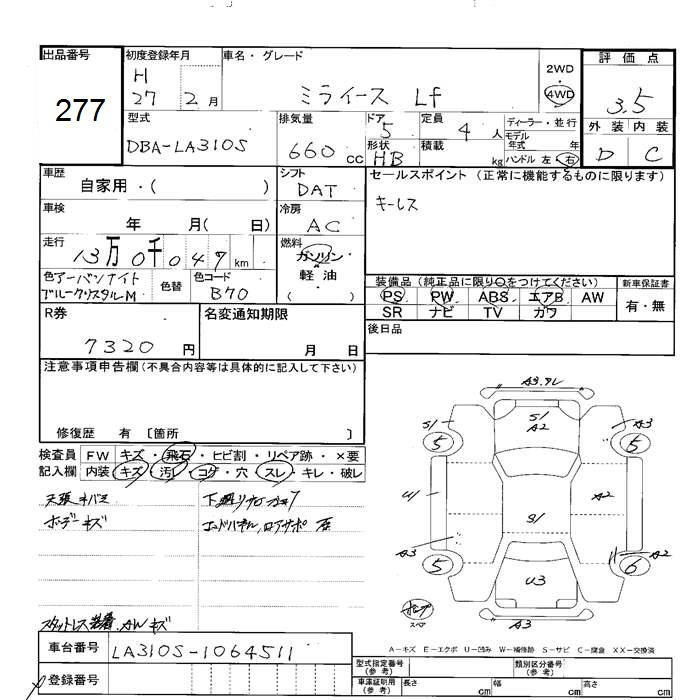 出品番号
277
初度登録年月
H
27 2月
車名・グレード
ミライース Lf
2WD
・
4WD
評価点
3.5
外装 内装
D C
型式
DBA-LA310S
排気量
660 CC
ドア
5
形状
HB
定員
4 人
積載
kg
ディーラー・並行
モデル
年式 年
ハンドル 左 右
車歴
自家用・( )
シフト
DAT
セールスポイント (正常に機能するものに限ります)
キーレス
車検
年 月( 日)
冷房
AC
走行
13万0千047km
燃料
ガソリン
軽油
( )
色アーバンナイト
ブルークリスタルM
色替
色コード
B70
装備品 (純正品に限り○をつけてください)
PS PW ABS エアB AW
SR ナビ TV カワ
新車保証書
有・無
R券
7320 円
名変通知期限
月 日
後日品
注意事項申告欄 (不具合内容等は具体的に記入して下さい)
修復歴 有 〔箇所 〕
検査員
記入欄
FW キズ・飛石・ヒビ割・リペア跡・×要
内装 キズ・汚レ・コゲ・穴・スレ・キレ・破レ
天張キバミ
ボデーキズ
スタットレス装着、AWキズ
A3.9L
S1
S1
A2
A3
5
5
U1
A2
S1
A3
A2
5
6
U3
スペア
A3
A-キズ E-エクボ U-凹み W-補修跡 S-サビ C-腐食 XX-交換済
車台番号
LA310S-1064511
登録番号
型式指定番号
(参考)
類別区分番号
(参考)
車庫証明用
(参考)
長さ cm 幅 cm 高さ cm